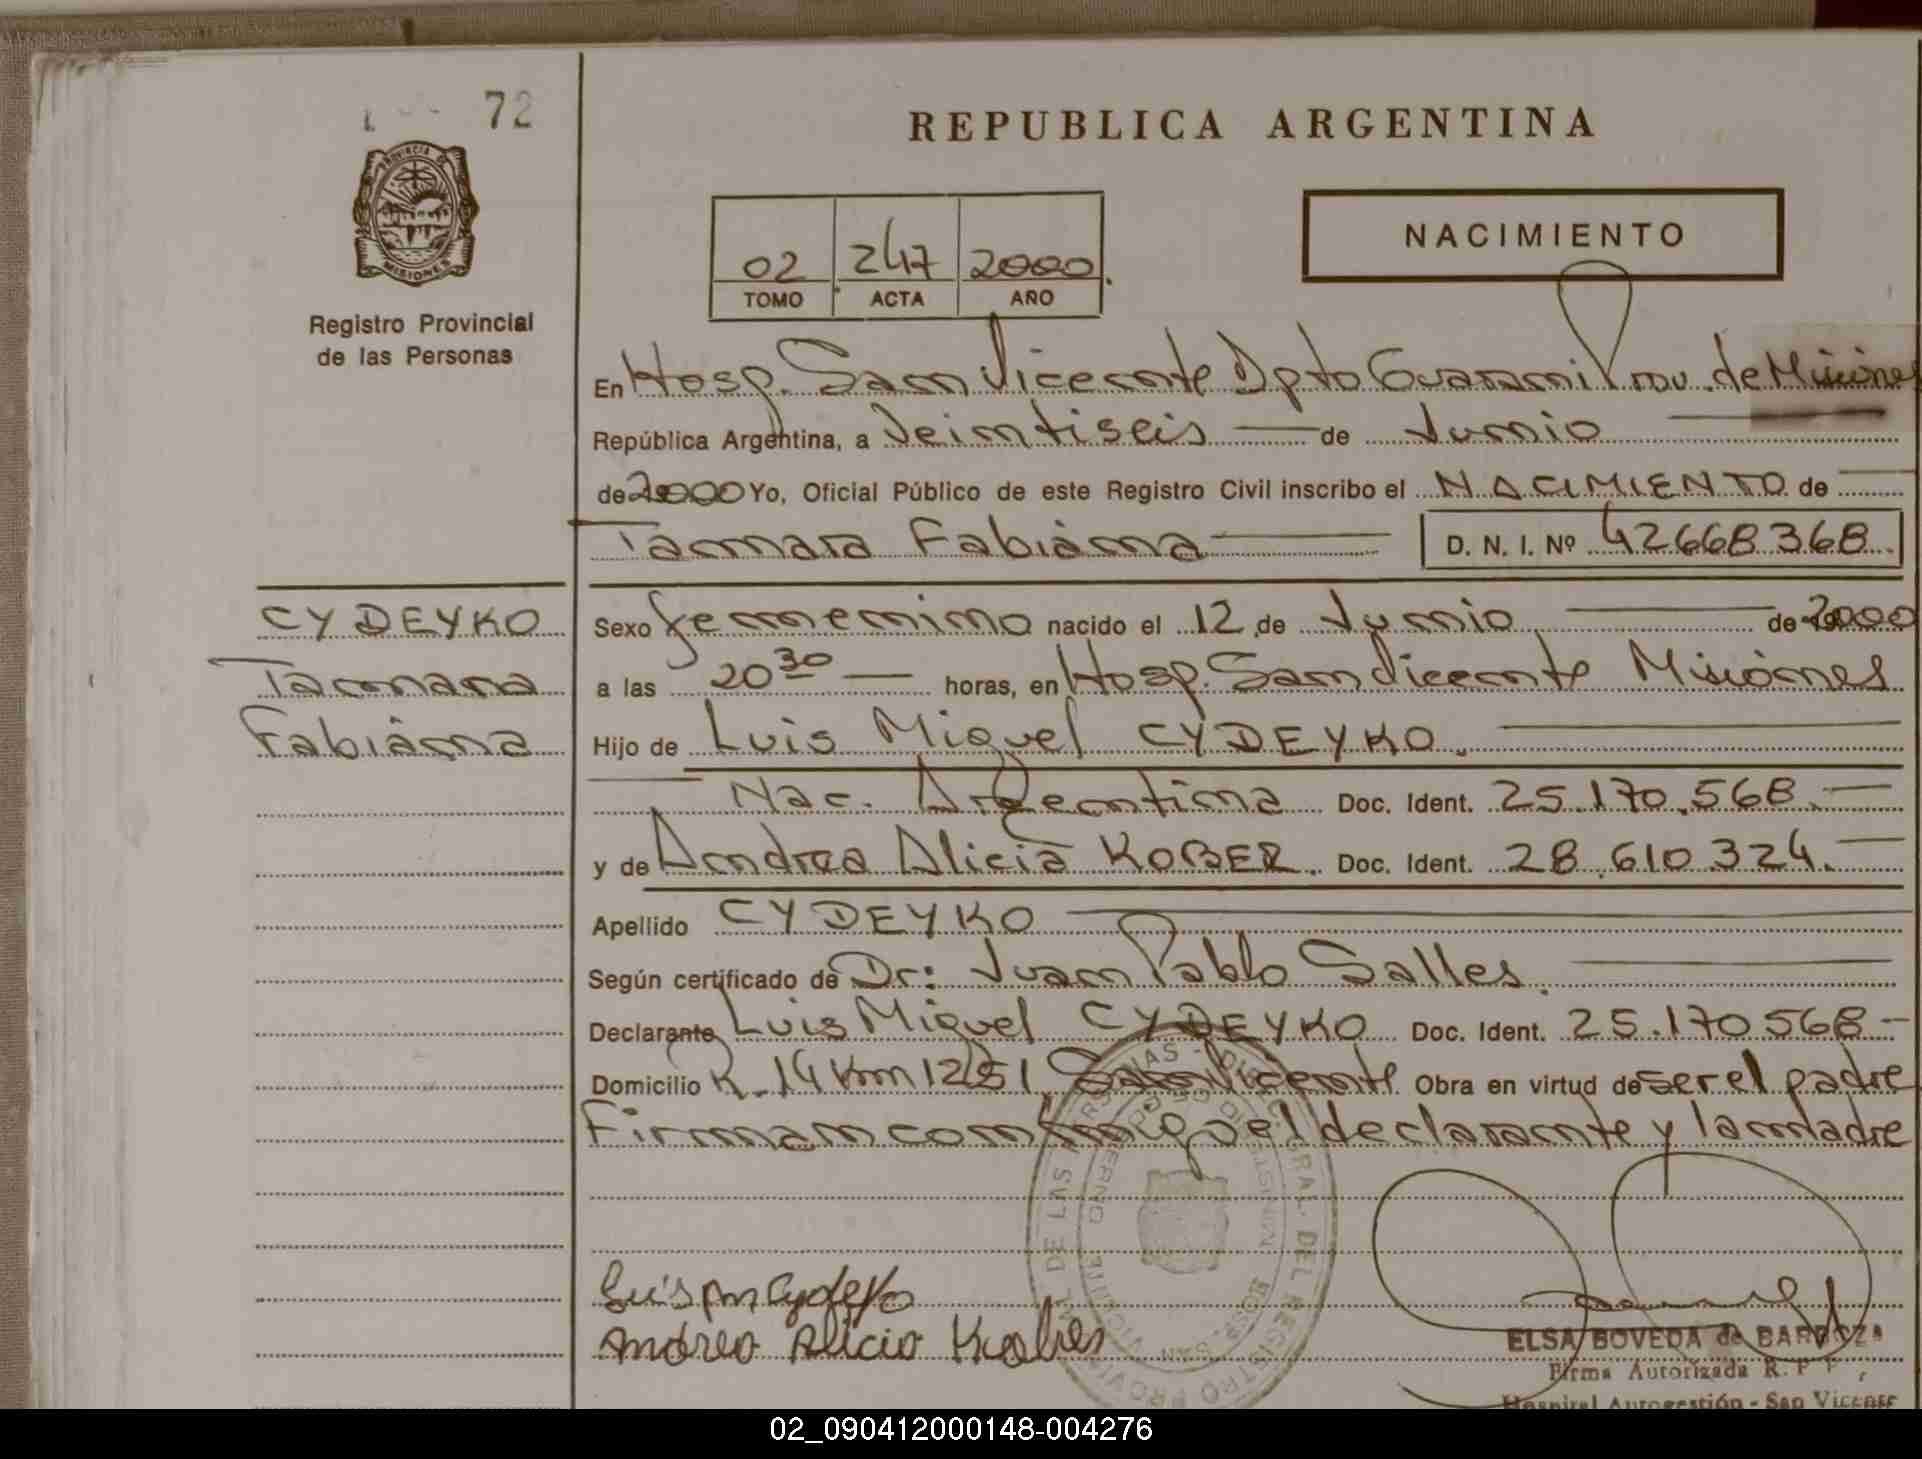 72
REPUBLICA ARGENTINA
PROVINCIA DE
MISIONES
Registro Provincial
de las Personas
02 247 2000
TOMO ACTA AÑO
NACIMIENTO
En Hosp. San Vicente Dpto Guarani Prov. de Misiones
República Argentina, a Veintiseis de Junio
de 2000 Yo, Oficial Público de este Registro Civil inscribo el NACIMIENTO de
Tamara Fabiána D. N. I. Nº 42668368
CYDEYKO
Tamara
Fabiána
Sexo femenino nacido el 12 de Junio de 2000
a las 20 30 horas, en Hosp. San Vicente Misiones
Hijo de Luis Miguel CYDEYKO.
Nac. Argentina Doc. Ident. 25.170.568.
y de Andrea Alicia KOBER. Doc. Ident. 28.610.324.
Apellido CYDEYKO
Según certificado de Dr: Juan Pablo Salles.
Declarante Luis Miguel CYDEYKO Doc. Ident. 25.170568
Domicilio R. 14 Km 1251, San Vicente Obra en virtud de ser el padre
Firman conmigo el declarante y la madre
Luis M Cydeyko
Andrea Alicia Kober
ELSA BOVEDA de BARBOZA
Firma Autorizada R. P
Hospital Autogestión - San Vicente
02_090412000148-004276